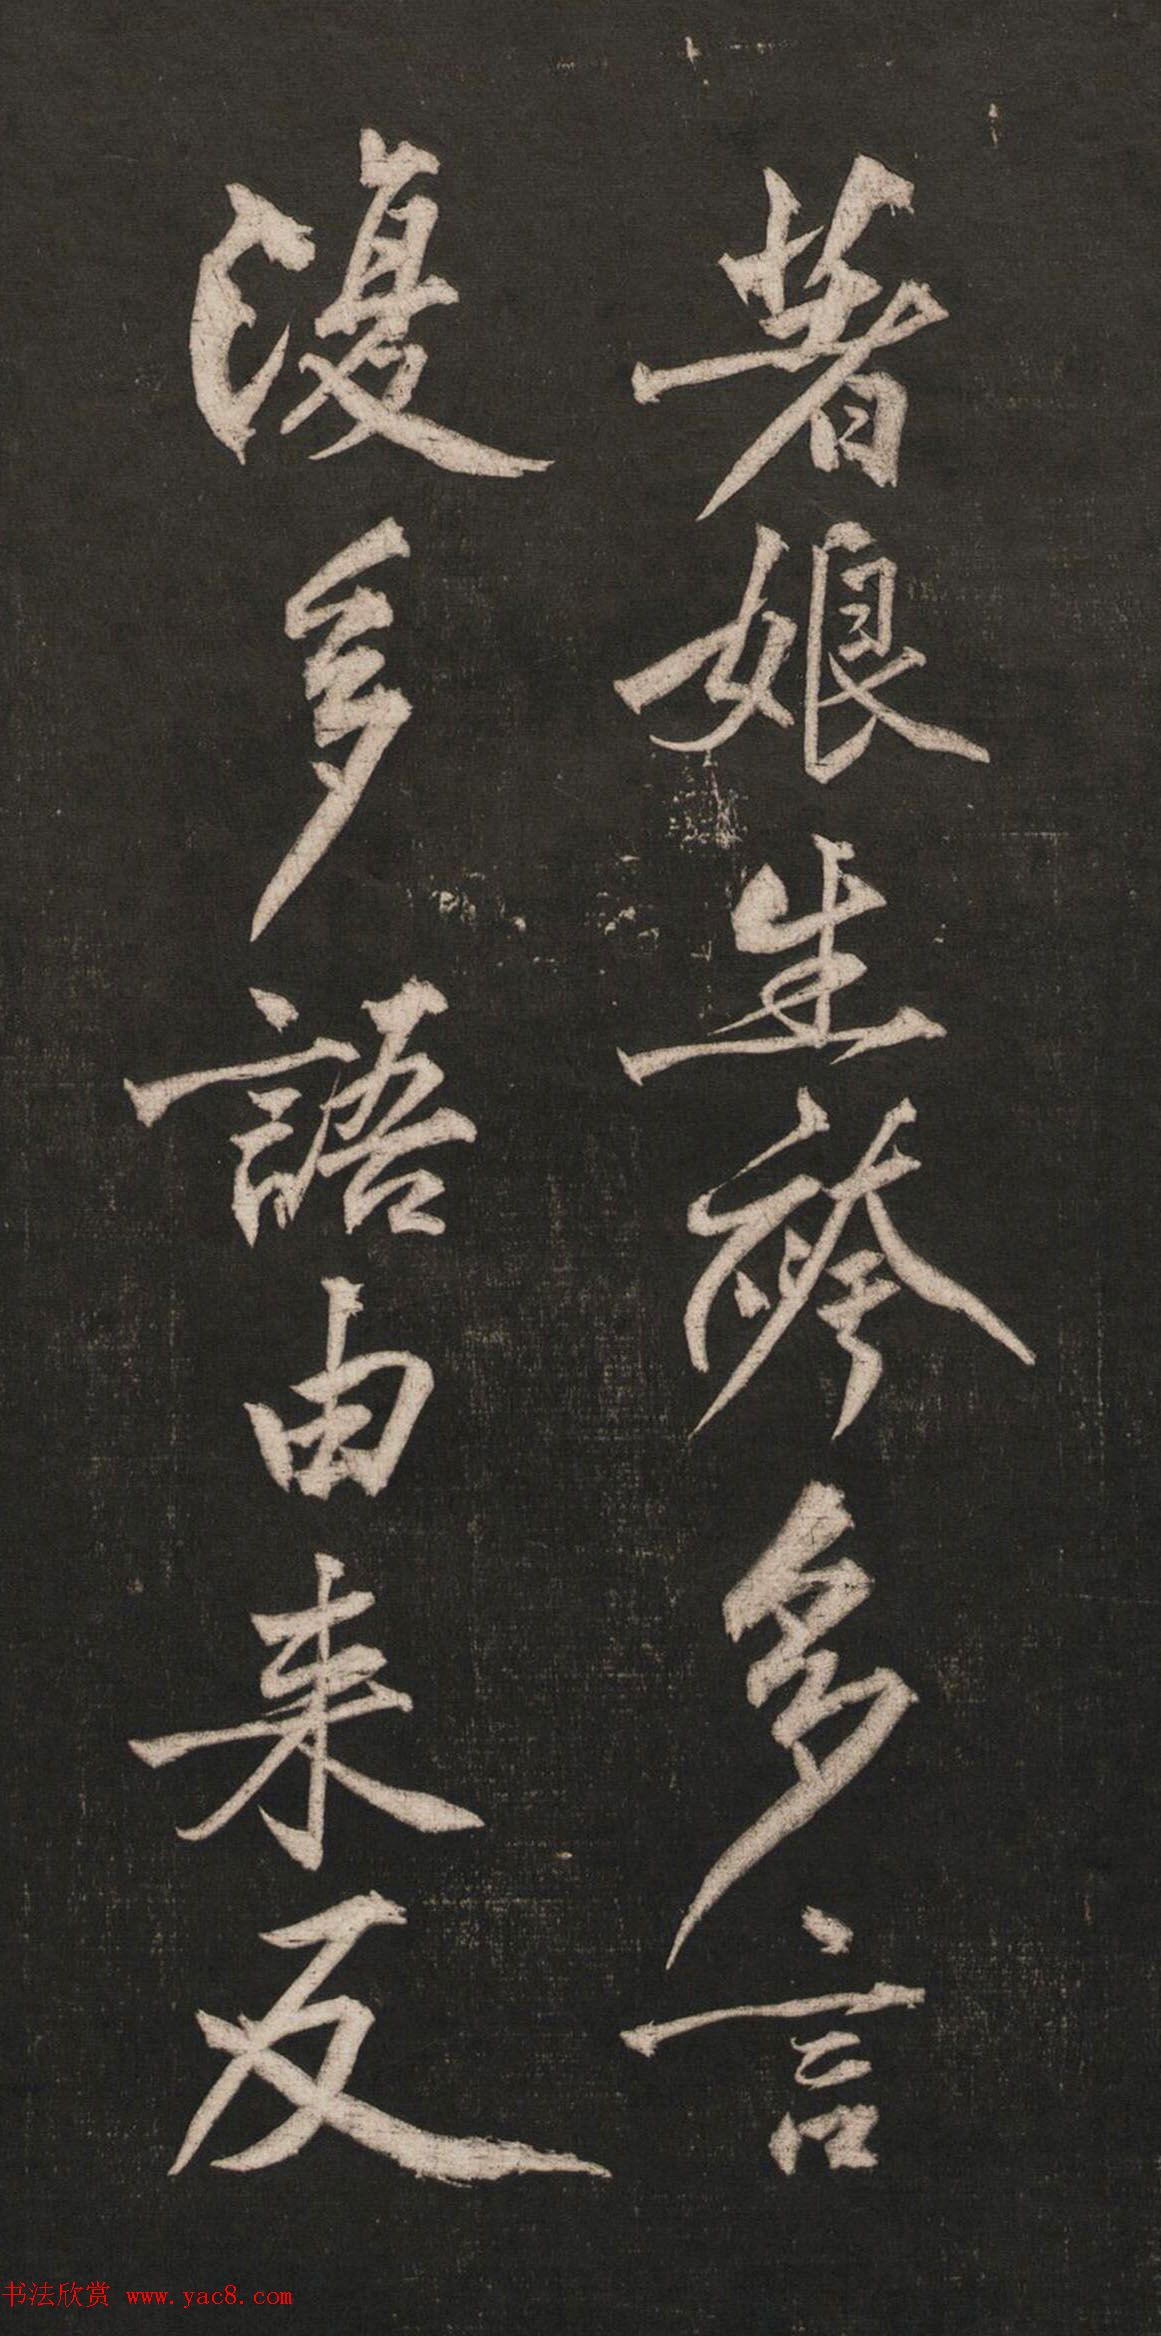 著娘生袴多言
復多語由来反
书法欣赏 www.yac8.com